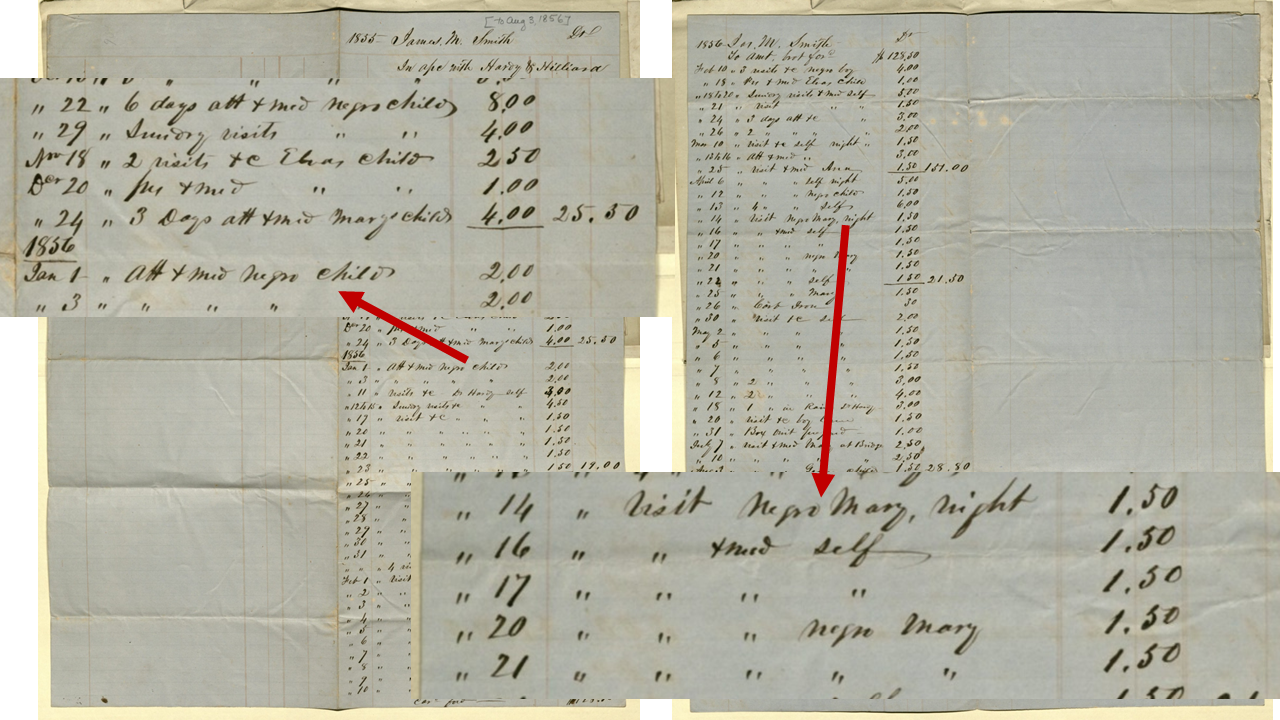 [to Aug 3, 1856]
1855 James. M. Smith Dr
In a/c with Hardy & Hilliard
" 22 " 6 days att & med negro child 8.00
" 29 " Sundry visits " " 4.00
Nov 18 " 2 visits &c Elvas child 2 50
Dec 20 " pres & med " " 1.00
" 24 " 3 Days att & med Marys child 4.00 25.50
1856
Jan 1 " Att & med negro child 2.00
" 3 " " " " 2.00
Dec 20 " pres & med " " 1.00
" 24 " 3 Days att & med Marys child 4.00 25.50
1856
Jan 1 " Att & med negro child 2.00
" 3 " " " " 2.00
" 11 " visits &c Dr Hardy self
" 12 & 15 " Sundry visits &c " " 4.50
" 17 " visit &c " " 1.50
" 20 " " " " " 1.50
" 21 " " " " " 1.50
" 22 " " " " " 1.50
" 23 " " " " " 1.50 19.00
" 25 "
" 26 "
" 27 "
" 28 "
" 29 "
" 30 "
" 31 "
" " " 4
Feb 1 " Visit
" 2 "
" 3 "
" 4 "
" 5 "
" 6 "
" 7 "
" 8 "
" 9 "
" 10 "
1856 Jas. M. Smith Dr
To Amt. brot for $128.50
Feb 10 " 3 visits &c negro boy 4.00
" 18 " Pres & med Elvas Child 1.00
" 18 to 20 " Sundry visits & med self 5.00
" 21 " visit " " 1.50
" 24 " 3 days att &c " 3.00
" 26 " 2 " " " " 2.00
Mar 10 " visit &c self night " 1.50
" 12 & 16 " att & med " " 3.00
" 25 " visit & med Ann 1.50 151.00
April 6 " " " self night 5.00
" 12 " " " negro child 1.50
" 13 " 4 " " self 6.00
" 14 " Visit Negro Mary, night 1.50
" 16 " " & med self 1.50
" 17 " " " " 1.50
" 20 " " " negro Mary 1.50
" 21 " " " " " 1.50
" 22 " " " self 1.50 21.50
" 25 " " " Mary 1.50
" 26 " Iron 50
" 30 " Visit &c self 2.00
May 2 " " " " 1.50
" 5 " " " " 1.50
" 6 " " " " 1.50
" 7 " " " " 1.50
" 8 " 2 " " " 3.00
" 12 " 2 " " " 4.00
" 18 " 1 " in Rain Dr Hardy 3.00
" 20 " visit &c boy 1.50
" 31 " Box 1.00
July 7 " visit & med Mary at Bridge 2.50
" 10 " " " " " 2.50
1.50 28.80
" 14 " visit Negro Mary, night 1.50
" 16 " " & med self 1.50
" 17 " " " " 1.50
" 20 " " " negro Mary 1.50
" 21 " " " " " 1.50